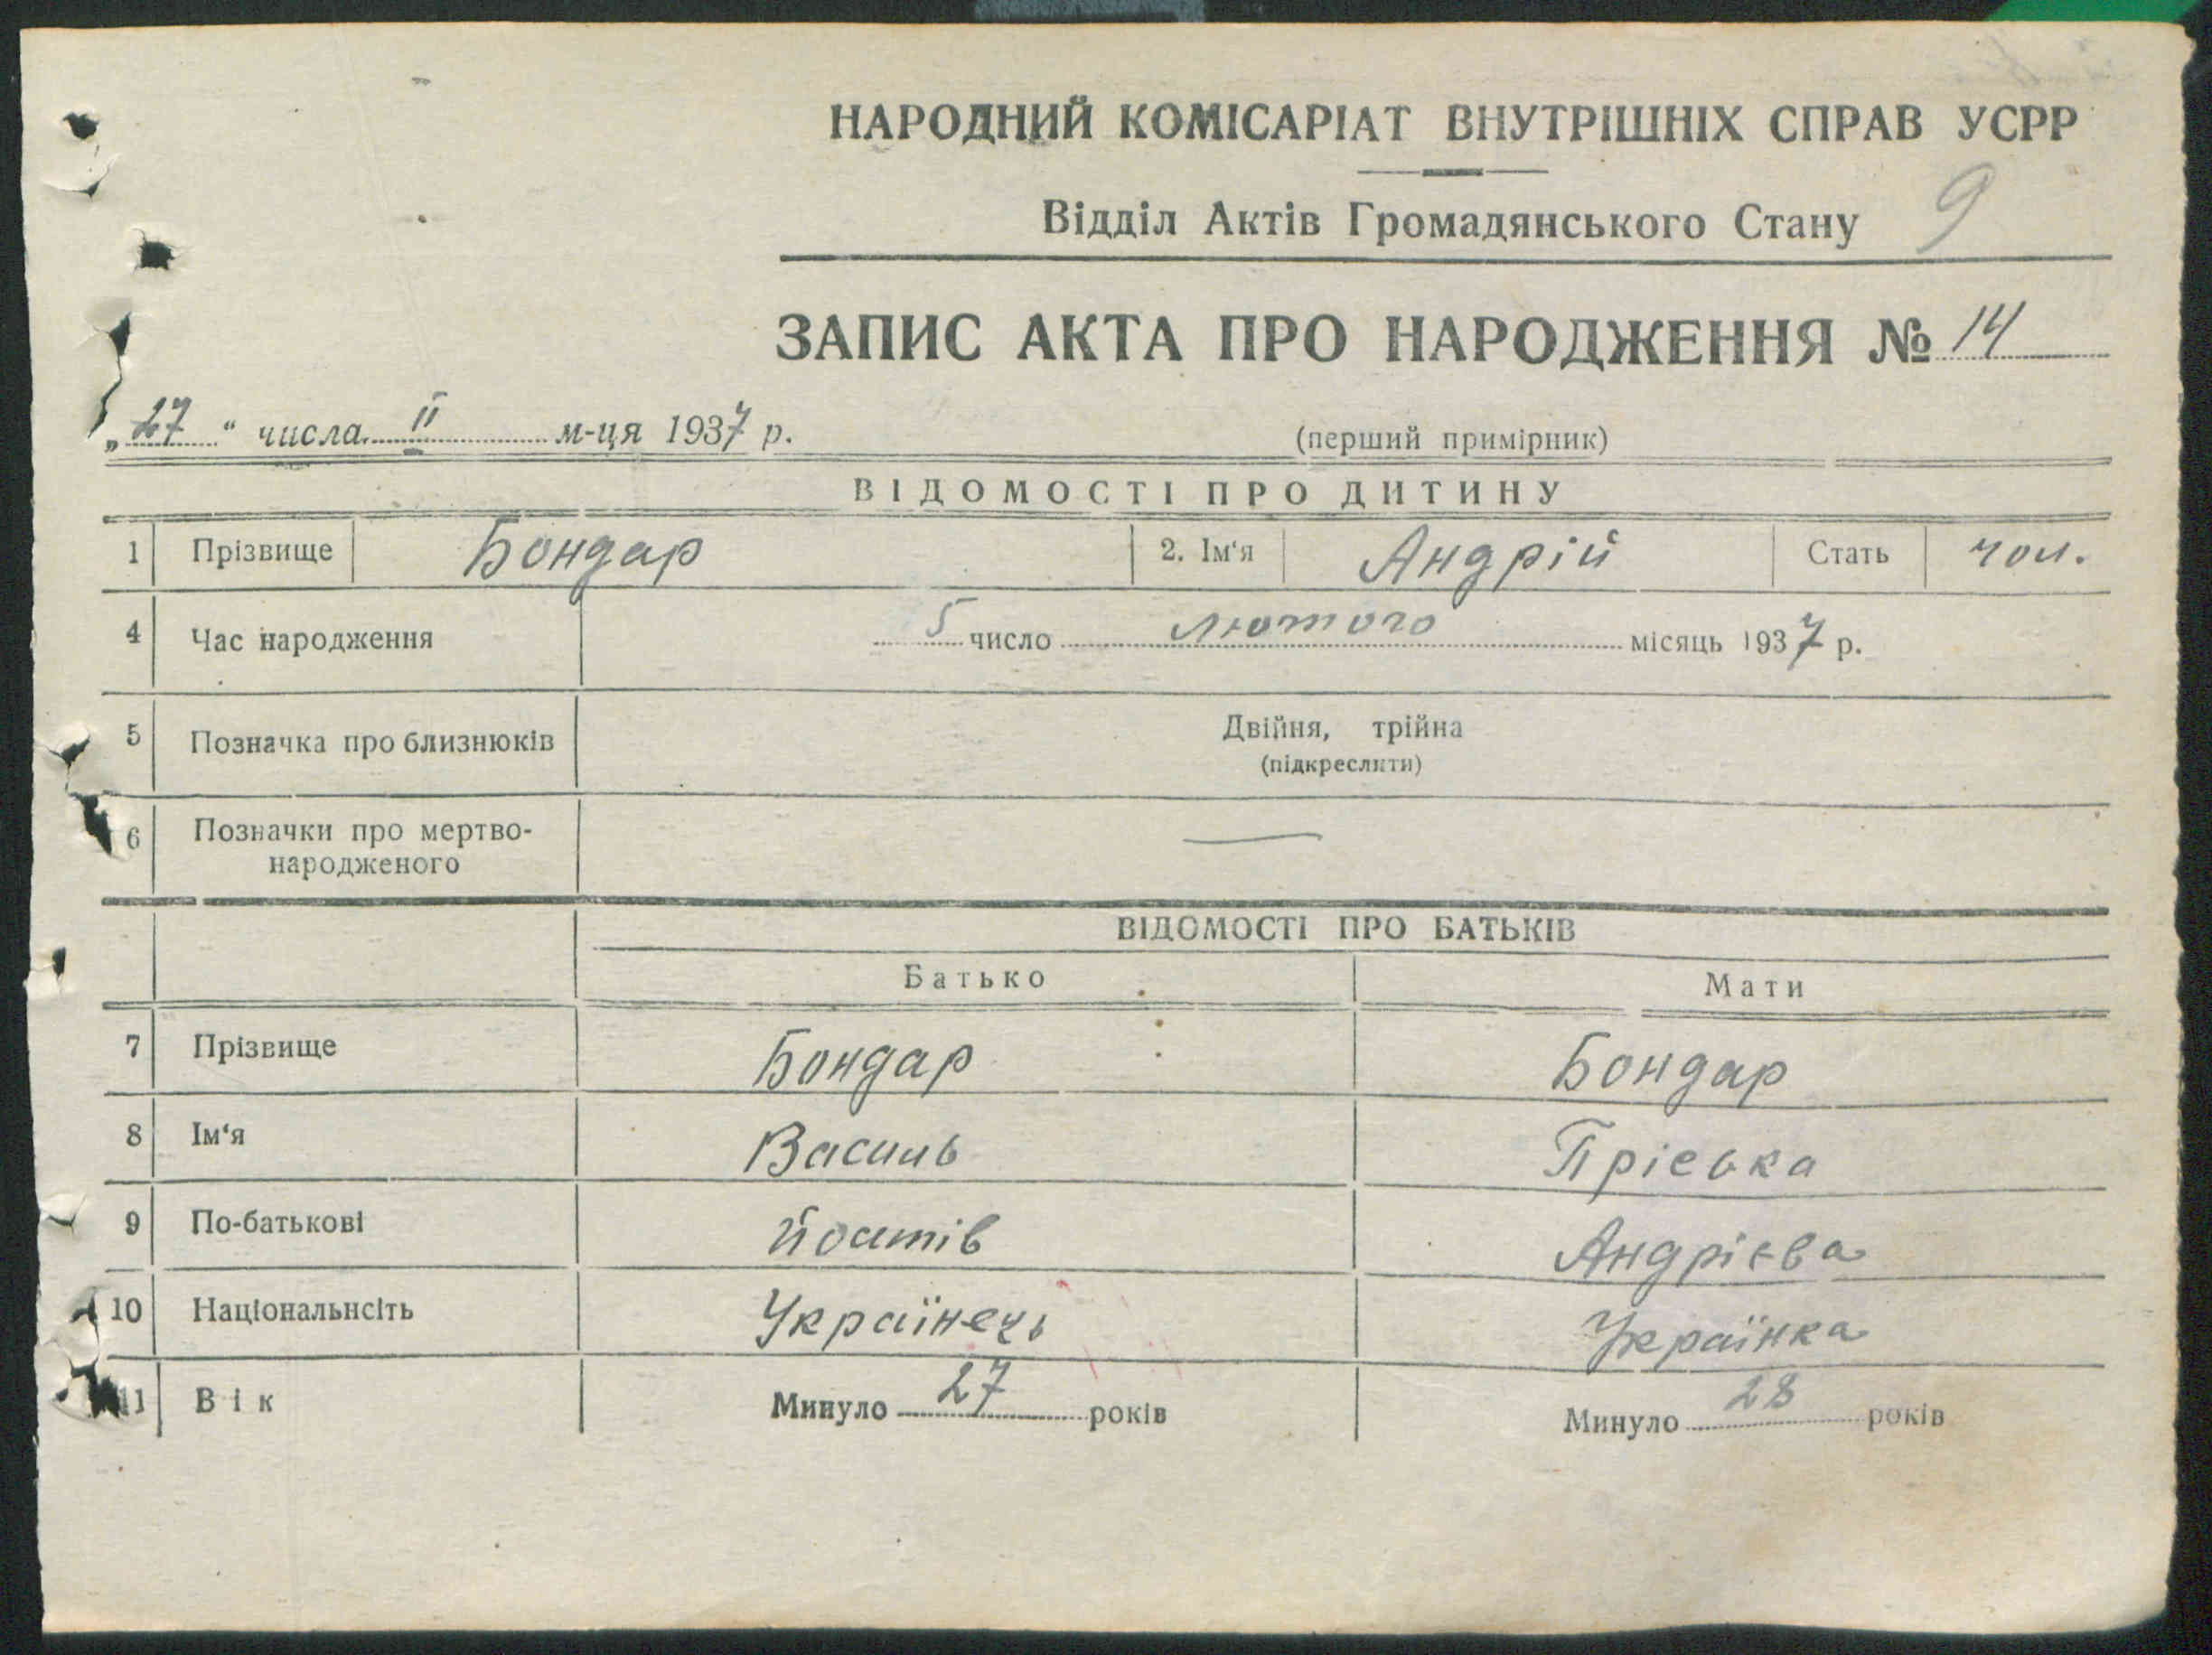 НАРОДНИЙ КОМІСАРІАТ ВНУТРІШНІХ СПРАВ УСРР
Відділ Актів Громадянського Стану 9
ЗАПИС АКТА ПРО НАРОДЖЕННЯ № 14
„27“ числа II м-ця 1937 р. (перший примірник)
ВІДОМОСТІ ПРО ДИТИНУ
1 Прізвище Бондар 2. Ім'я Андрій Стать чол.
4 Час народження 5 число лютого місяць 1937 р.
5 Позначка про близнюків Двійня, трійна
(підкреслити)
6 Позначки про мертво-
народженого —
ВІДОМОСТІ ПРО БАТЬКІВ
Батько Мати
7 Прізвище Бондар Бондар
8 Ім'я Василь Пріська
9 По-батькові Андрієва
10 Національнсіть Українець Українка
11 Вік Минуло 27 років Минуло 28 років